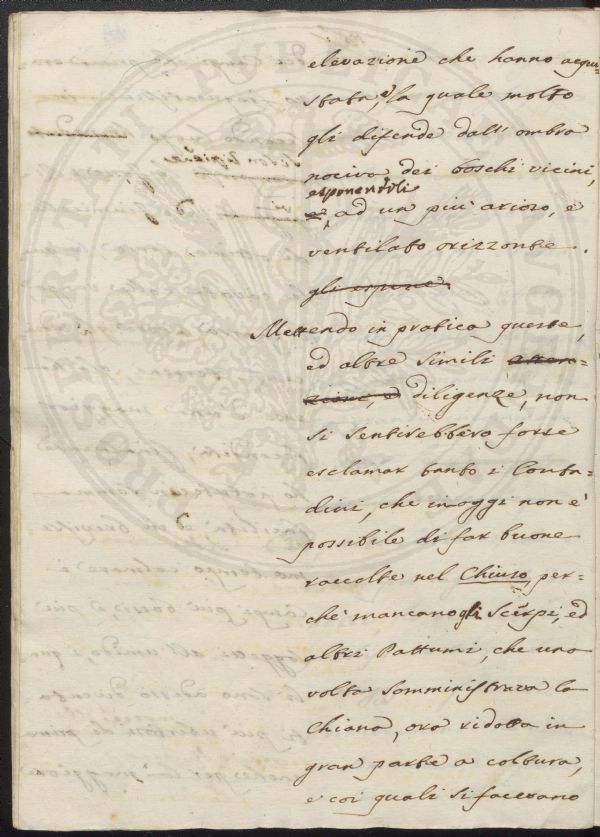 elevazione che hanno acqui-
stata, la quale molto
gli difende dall' ombra
nociva dei boschi vicini,
esponendoli
e, ad un più arioso, e
ventilato orizzonte.
gli espone.
Mettendo in pratica queste,
ed altre simili atten-
zioni, e diligenze, non
si sentirebbero forse
esclamar tanto i Conta-
dini, che in oggi non è
possibile di far buone
raccolte nel Chiuso, per-
chè mancano gli Scerpi, ed
altri Pattumi, che una
volta somministrava la
Chiana, ora ridotta in
gran parte a coltura,
e coi quali si facevano